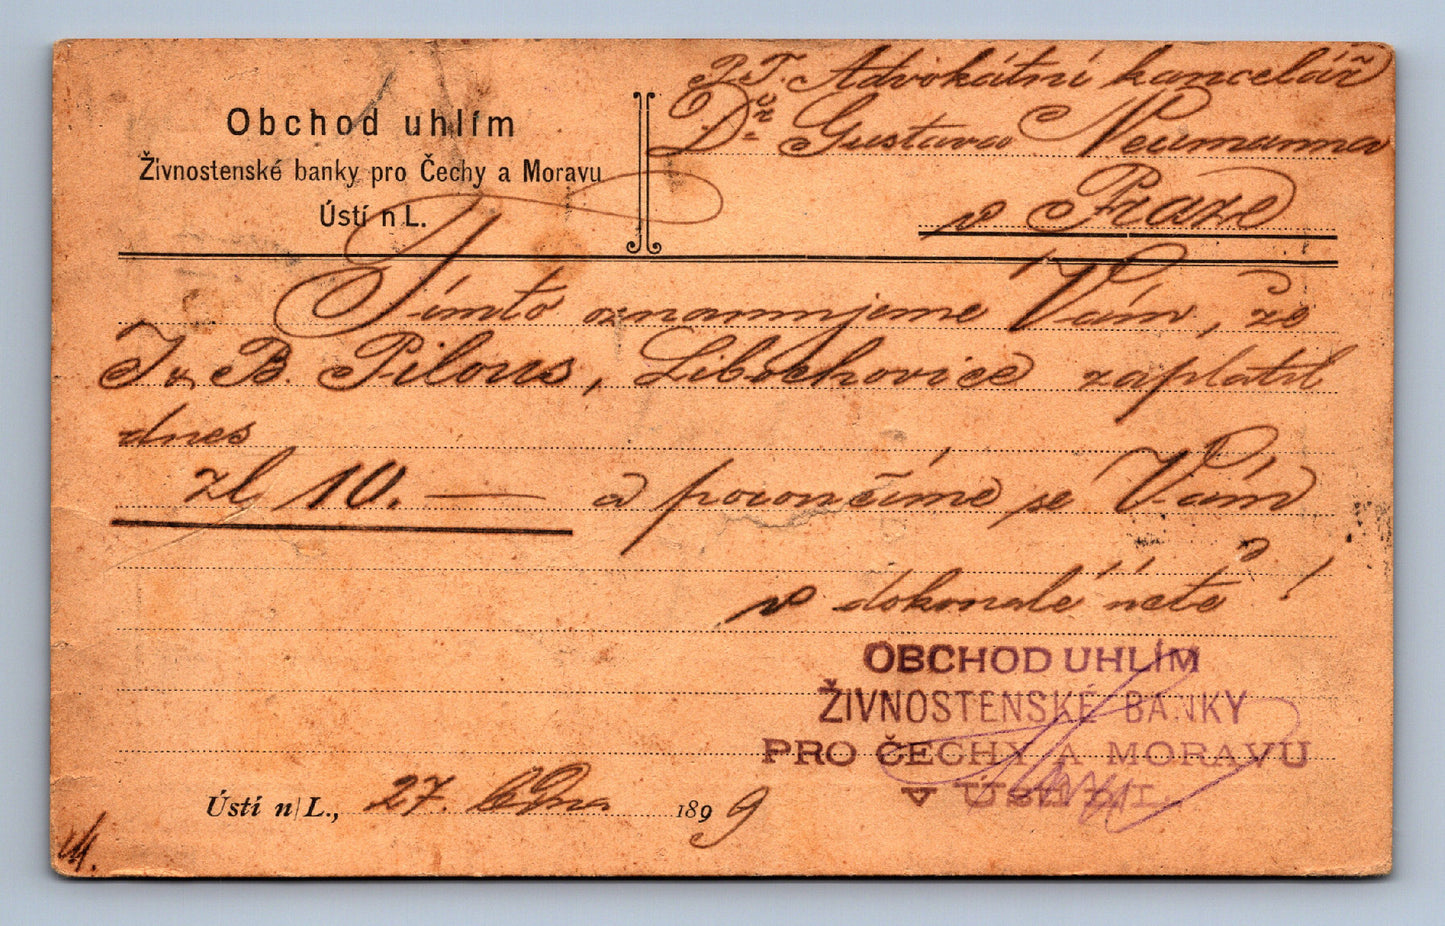 Obchod uhlím
Živnostenské banky pro Čechy a Moravu
Ústí n L.
P.T. Advokátní kancelář
Dra Gustava Neumanna
v Praze
Tímto oznamujeme Vám, že
J. B. Pilous, Libochovice zaplatil
dnes
zl 10. — a poroučíme se Vám
v dokonalé úctě!
OBCHOD UHLÍM
ŽIVNOSTENSKÉ BANKY
PRO ČECHY A MORAVU
V ÚSTÍ N/L.
Ústí n/L., 27. 1899
M.